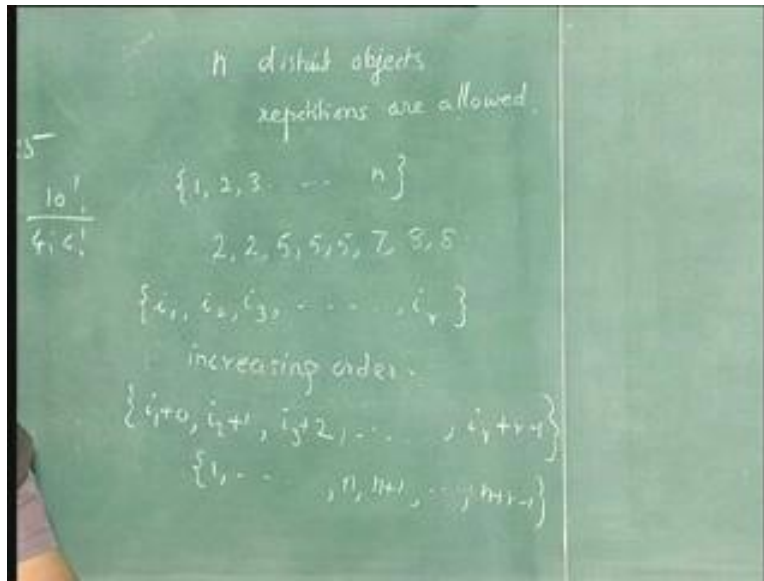 n distinct objects
repetitions are allowed.
{1, 2, 3 ... n}
10!
2, 2, 5, 5, 5, 7, 8, 8
{i₁, i₂, i₃, ......, iᵣ}
increasing order.
{i₁+0, i₂+1, i₃+2, ....., iᵣ+r-1}
{1, ... , n, n+1, ..., n+r-1}